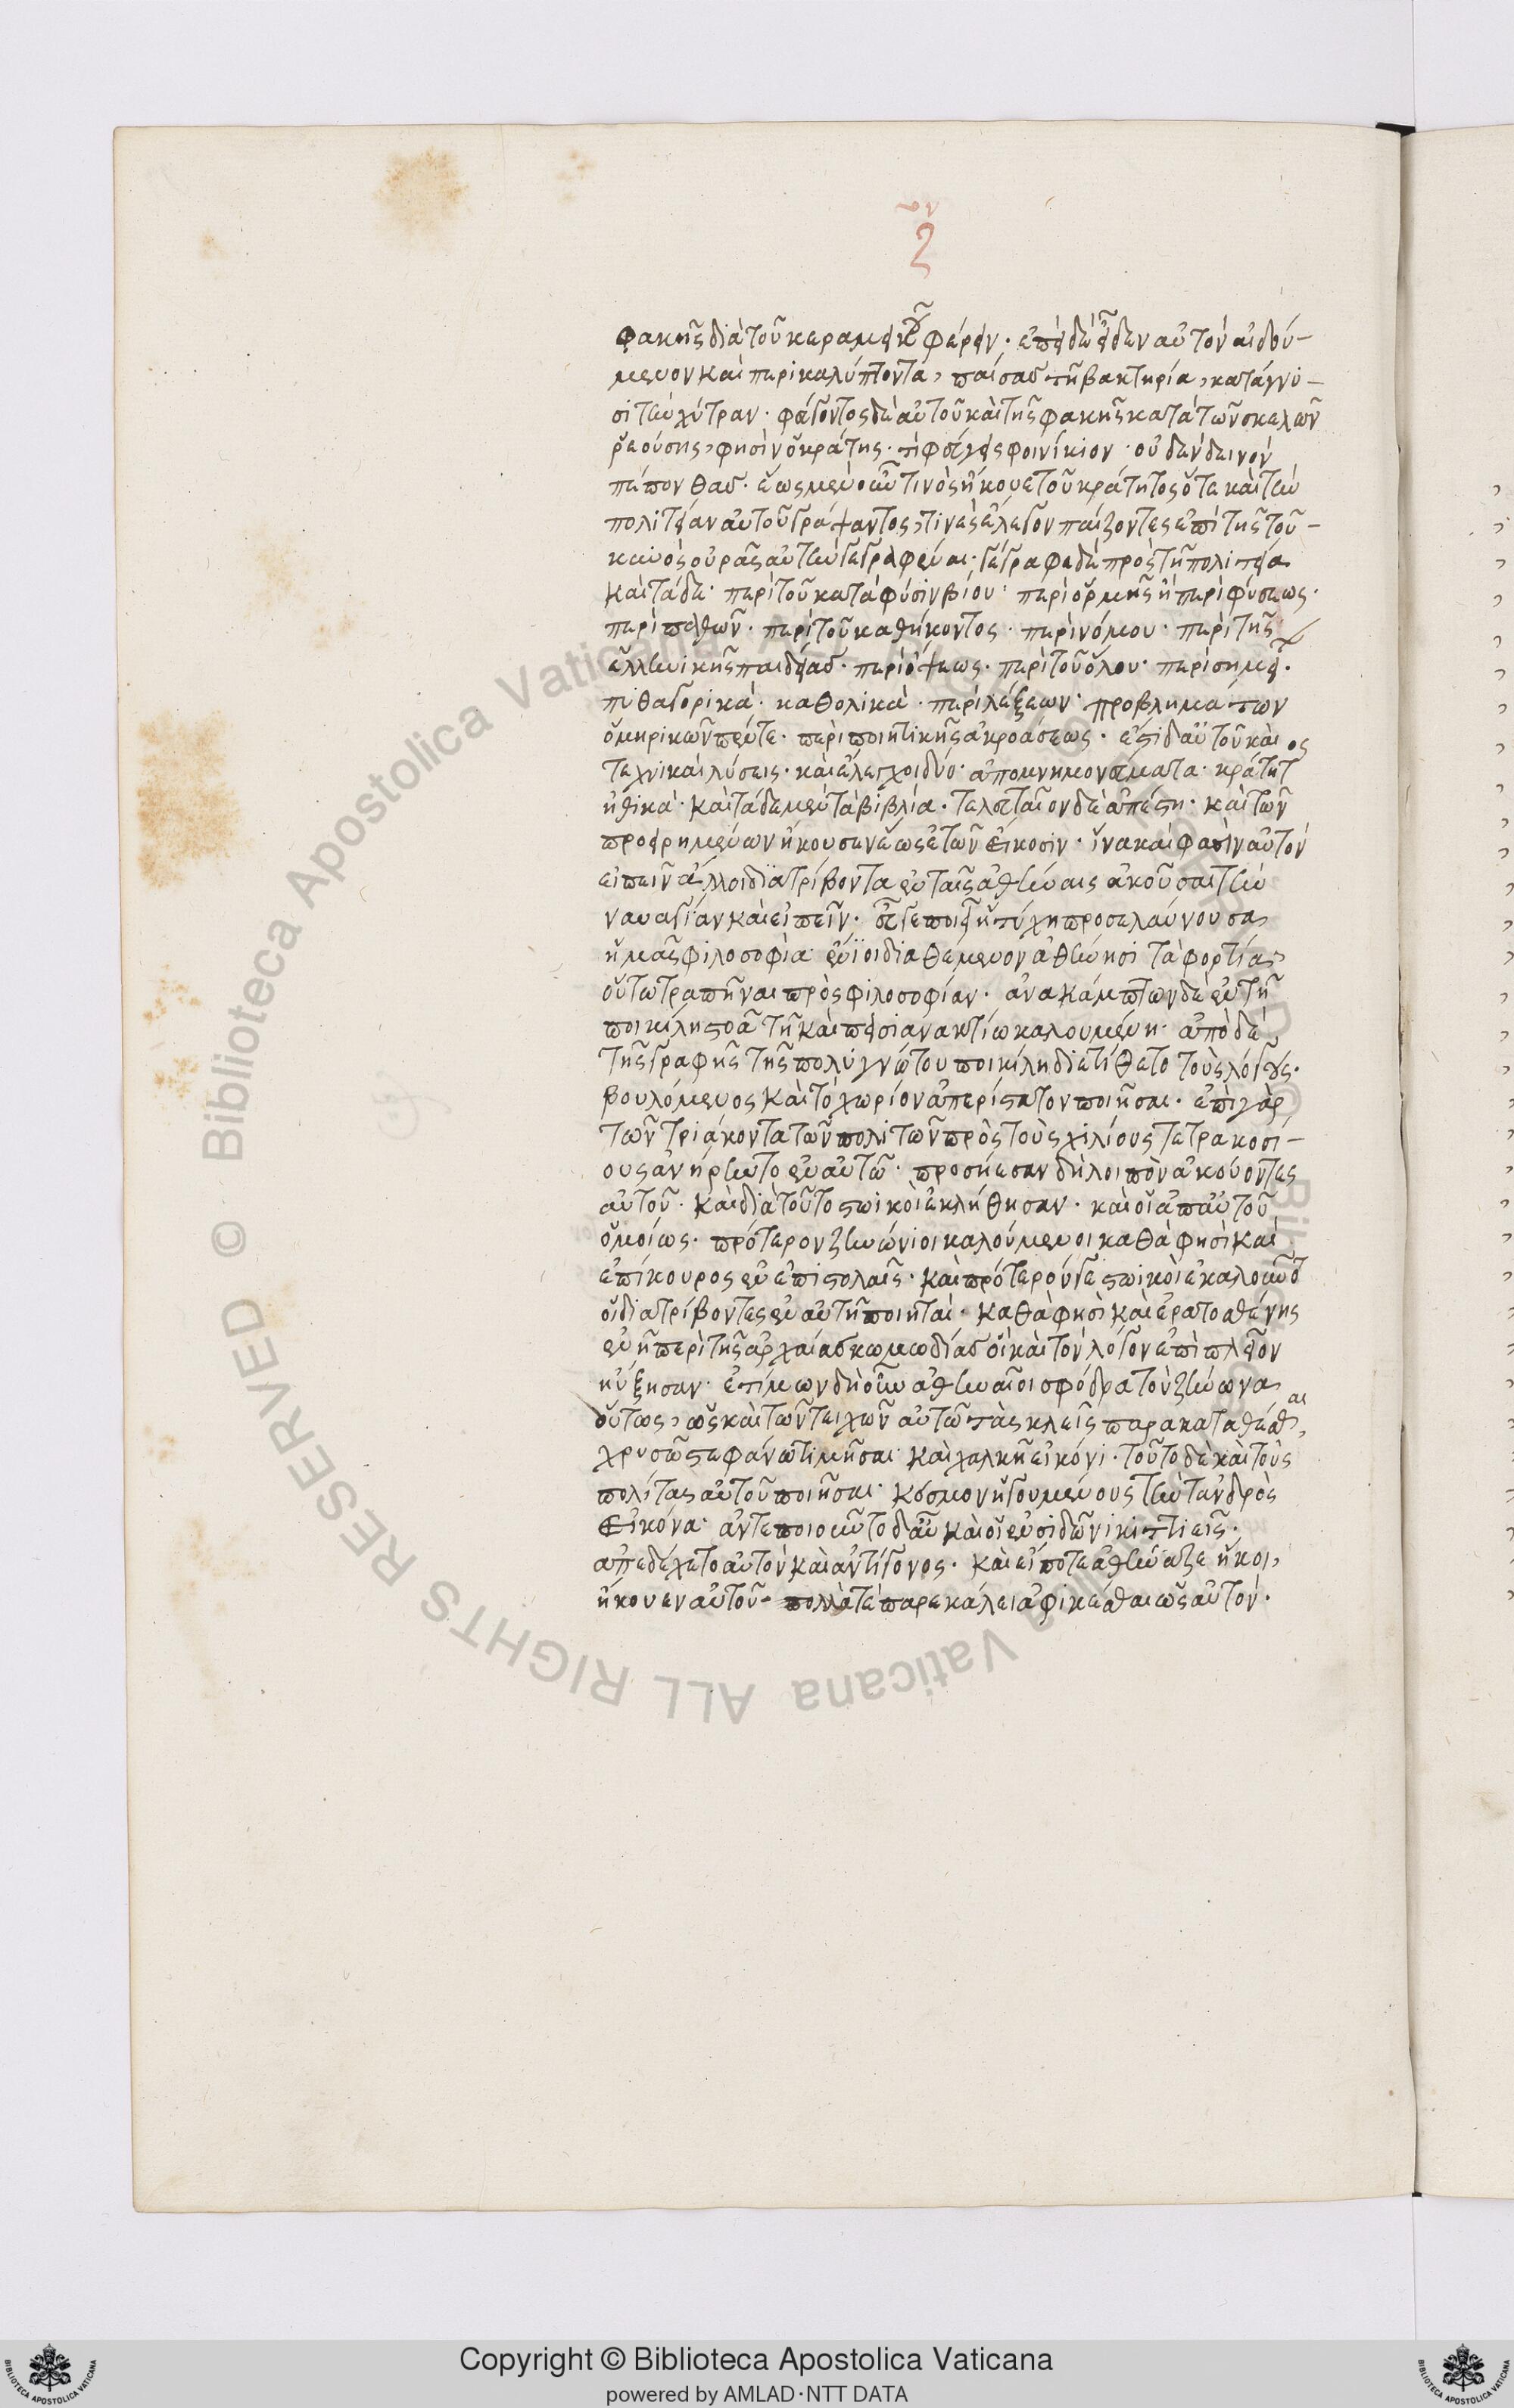 ζην
φακῆς διὰ τοῦ κεραμεικοῦ φέρειν· ἐπεὶ δὲ εἶδεν αὐτὸν αἰδού-
μενον καὶ περικαλύπτοντα, παίσας τῆ βακτηρία, κατάγνυ-
σι τὴν χύτραν· φεύγοντος δὲ αὐτοῦ καὶ τῆς φακῆς κατὰ τῶν σκελῶν
ῥεούσης, φησὶν ὁ κράτης· τί φεύγεις φοινίκιον· οὐδὲν δεινὸν
πέπονθας· ἕως μὲν οὖν τινὸς ἤκουε τοῦ κράτητος ὅτε καὶ τὴν
πολιτείαν αὐτοῦ γράψαντος, τινὲς ἔλεγον παίζοντες ἐπὶ τῆς τοῦ
κυνὸς οὐρᾶς αὐτὴν γεγραφέναι· γέγραφε δὲ πρὸς τῆ πολιτεία
καὶ τάδε· περὶ τοῦ κατὰ φύσιν βίου· περὶ ὁρμῆς ἢ περὶ φύσεως·
περὶ παθῶν· περὶ τοῦ καθήκοντος· περὶ νόμου· περὶ τῆς
ἑλληνικῆς παιδείας· περὶ ὄψεως· περὶ τοῦ ὅλου· περὶ σημεί·
πυθαγορικά· καθολικά· περὶ λέξεων· προβλημάτων
ὁμηρικῶν πέντε· περὶ ποιητικῆς ἀκροάσεως· ἔστι δ' αὐτοῦ καὶ
τέχνη καὶ λύσεις· καὶ ἔλεγχοι δύο· ἀπομνημονεύματα· κράτητος
ἠθικά· καὶ τάδε μὲν τὰ βιβλία· τελευταῖον δὲ ἀπέστη· καὶ τῶν
προειρημένων ἤκουσεν ἕως ἐτῶν εἴκοσιν· ἵνα καί φασιν αὐτὸν
εἰπεῖν ἄλλοι διατρίβοντα ἐν ταῖς ἀθήναις ἀκοῦσαι τὴν
ναυαγίαν καὶ εἰπεῖν· εὖ γε ποιεῖ ἡ τύχη προσελαύνουσα
ἡμᾶς φιλοσοφία· ἔνϊοι διαθέμενον ἀθήνησι τὰ φορτία
οὕτω τραπῆναι πρὸς φιλοσοφίαν· ἀνακάμπτων δὲ ἐν τῆ
ποικίλη στοᾶ τῆ καὶ πεισιανακτίω καλουμένη· ἀπὸ δὲ
τῆς γραφῆς τῆς πολυγνώτου ποικίλη διετίθετο τοὺς λόγους·
βουλόμενος καὶ τὸ χωρίον ἀπερίστατον ποιῆσαι· ἐπὶ γὰρ
τῶν τριάκοντα τῶν πολιτῶν πρὸς τοὺς χιλίους τετρακοσί-
ους ἀνήρηντο ἐν αὐτῶ· προσήεσαν δὴ λοιπὸν ἀκούοντες
αὐτοῦ· καὶ διὰ τοῦτο στωικοὶ ἐκλήθησαν· καὶ οἱ ἀπ' αὐτοῦ
ὁμοίως· πρότερον ζηνώνιοι καλούμενοι καθὰ φησὶ καὶ
ἐπίκουρος ἐν ἐπιστολαῖς· καὶ πρότερόν γε στωικοὶ ἐκαλοῦντ
οἱ διατρίβοντες ἐν αὐτῆ ποιηταί· καθὰ φησὶ καὶ ἐρατοσθένης
ἐν ἢ περὶ τῆς ἀρχαίας κωμωδίας οἳ καὶ τὸν λόγον ἐπὶ πλεῖον
ηὔξησαν· ἐτίμων δὴ οὖν ἀθηναῖοι σφόδρα τὸν ζήνωνα
οὕτως, ὡς καὶ τῶν τειχῶν αὐτῶ τὰς κλεῖς παρακαταθέσθαι,
χρυσῶ στεφάνω τιμῆσαι· καὶ χαλκῆ εἰκόνι· τοῦτο δὲ καὶ τοὺς
πολίτας αὐτοῦ ποιῆσαι· κόσμον ἡγουμένους τὴν τἀνδρὸς
εἰκόνα· ἀντεποιοῦντο δ' αὖ καὶ οἱ ἐν σιδῶνι κιττιεῖς·
ἀπεδέχετο αὐτὸν καὶ ἀντίγονος· καὶ εἴποτε ἀθήναζε ἥκοι,
ἤκουεν αὐτοῦ· πολλά τε παρεκάλει ἀφικέσθαι ὡς αὐτόν·
© Biblioteca Apostolica Vaticana ALL RIGHTS RESERVED
Copyright © Biblioteca Apostolica Vaticana
powered by AMLAD·NTT DATA
BIBLIOTECA APOSTOLICA VATICANA
BIBLIOTECA APOSTOLICA VATICANA